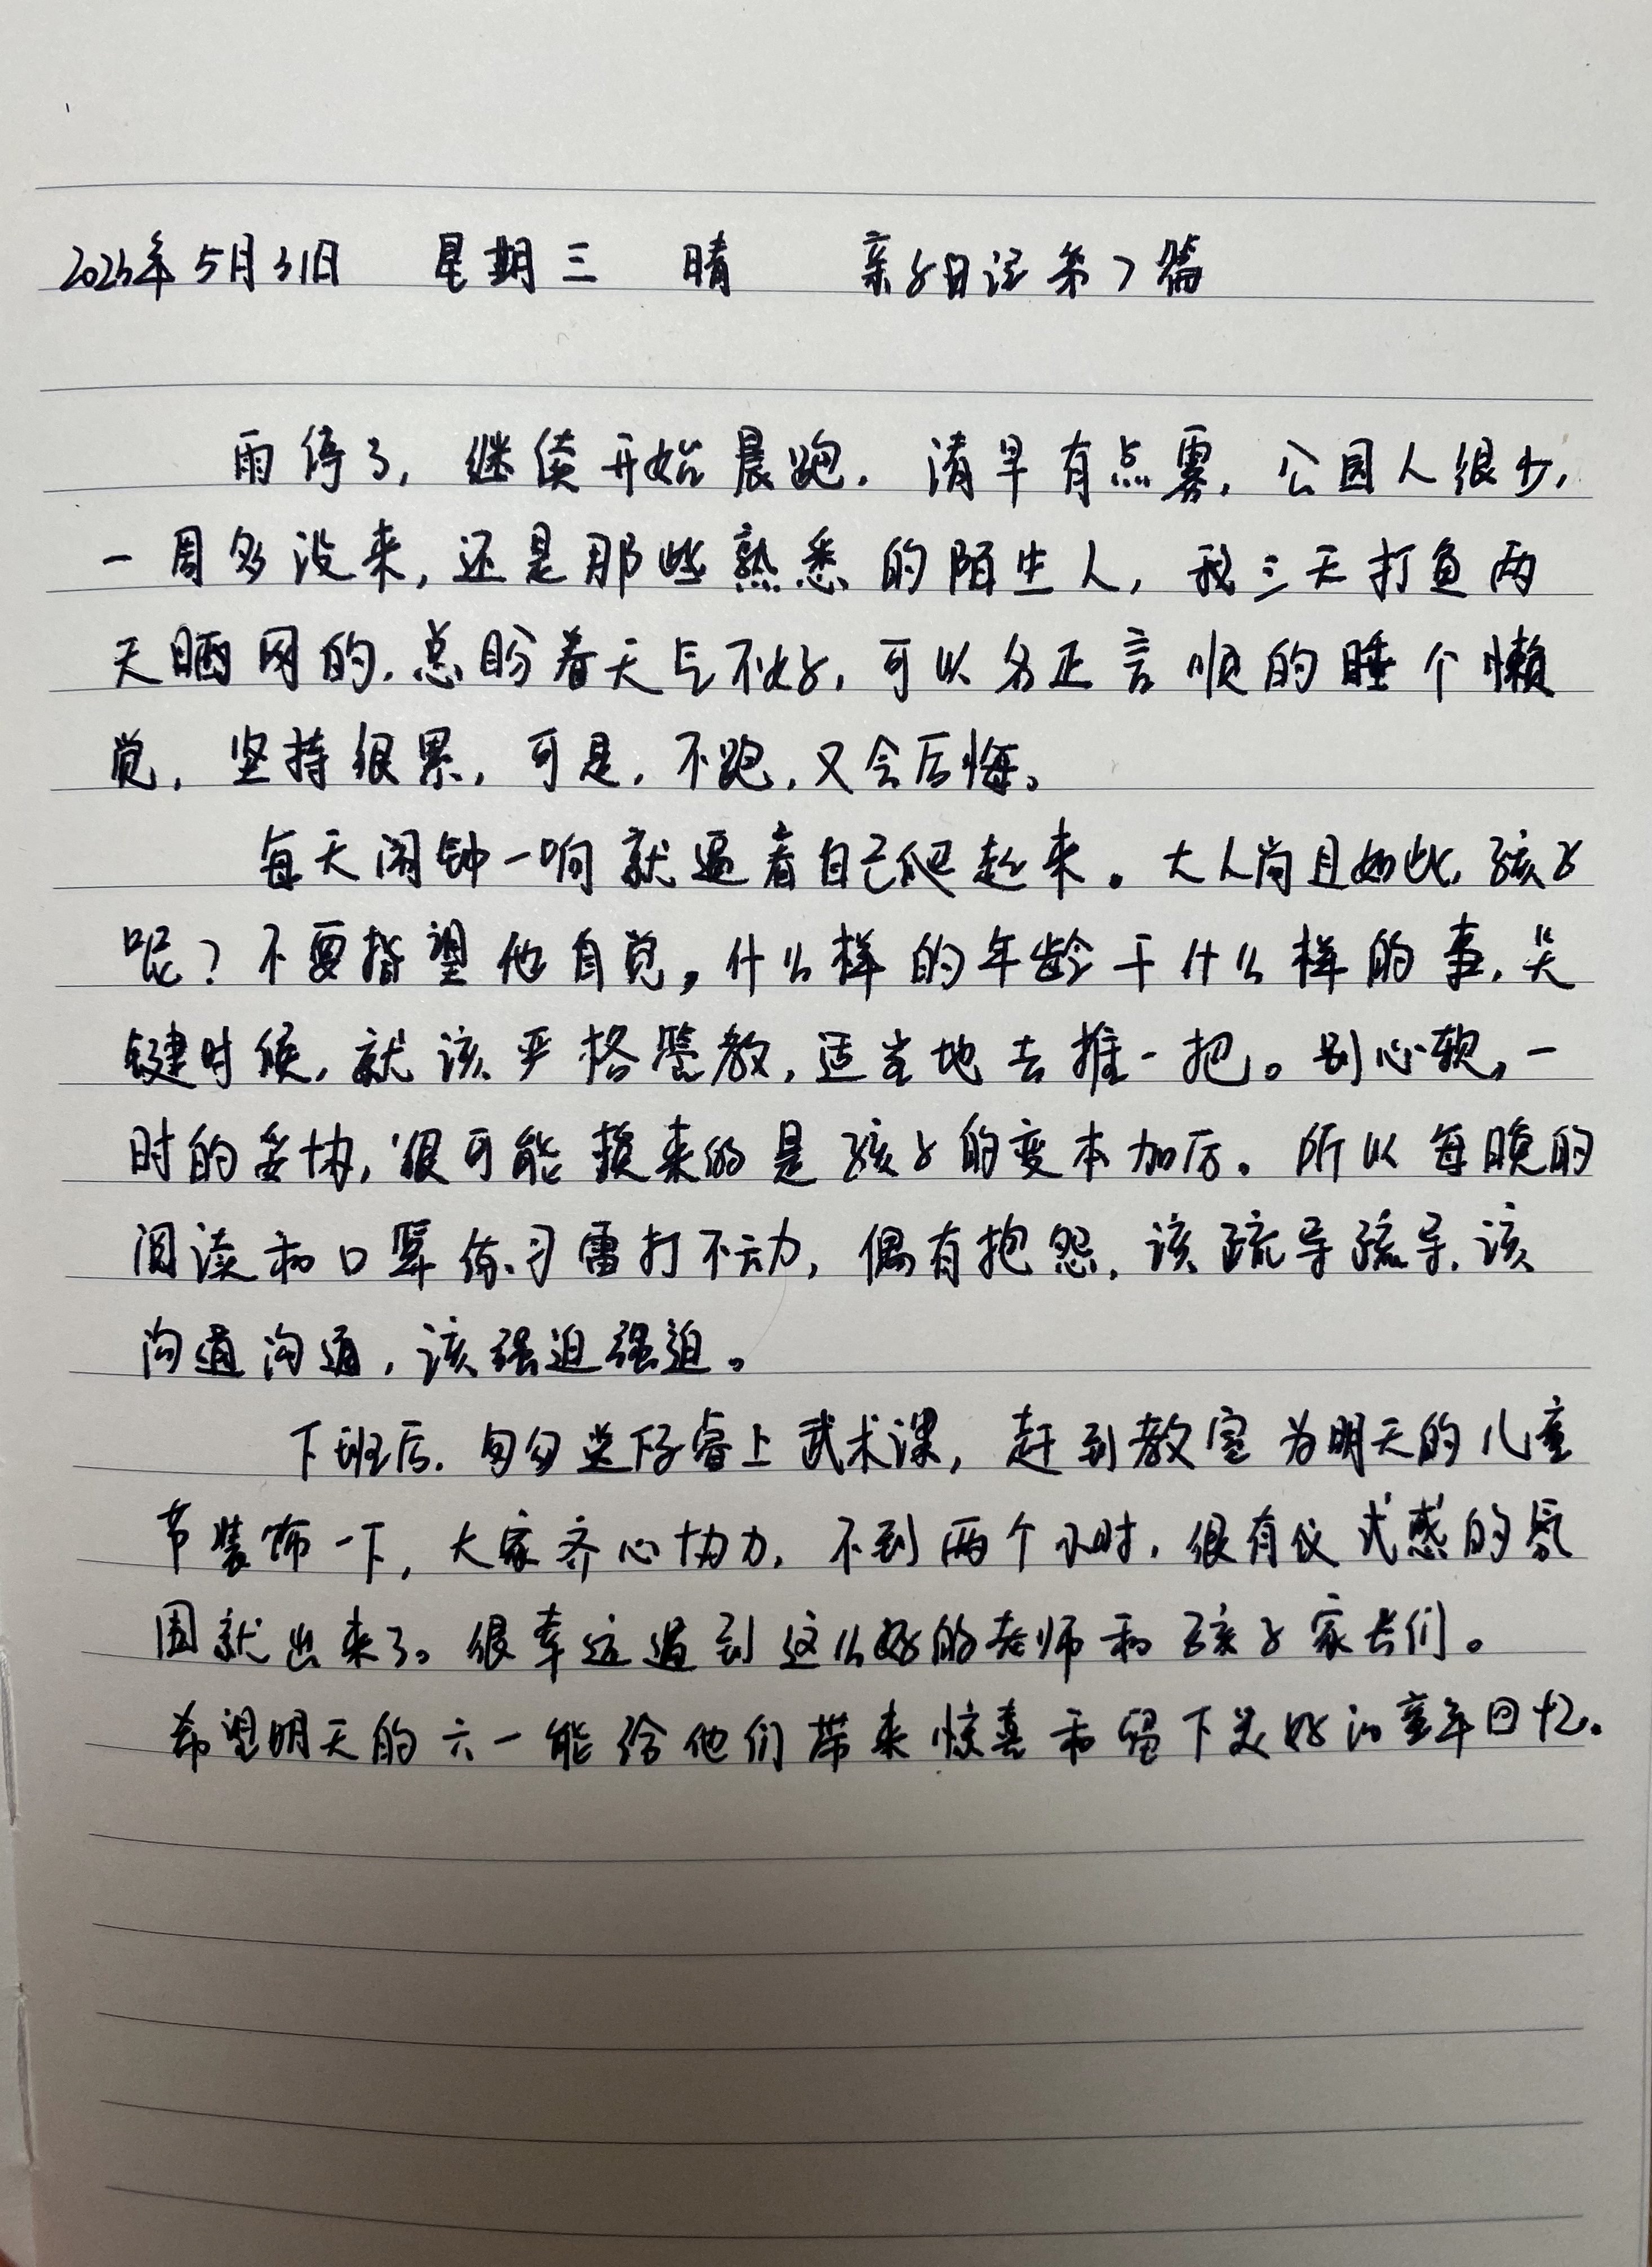 2023年5月31日 星期三 晴 亲子日记第7篇
雨停了，继续开始晨跑．清早有点雾，公园人很少，
一周多没来，还是那些熟悉的陌生人，我三天打鱼两
天晒网的．总盼着天气不好，可以名正言顺的睡个懒
觉，坚持很累，可是，不跑，又会后悔。
每天闹钟一响就逼着自己爬起来。大人尚且如此，孩子
呢？不要指望他自觉，什么样的年龄干什么样的事，关
键时候，就该严格管教，适当地去推一把。别心软，一
时的妥协，很可能换来的是孩子的变本加厉。所以每晚的
阅读和口算练习雷打不动，偶有抱怨，该疏导疏导，该
沟通沟通，该强迫强迫。
下班后．匆匆送下睿上武术课，赶到教室为明天的儿童
节装饰一下，大家齐心协力，不到两个小时，很有仪式感的氛
围就出来了。很幸运遇到这么好的老师和孩子家长们。
希望明天的六一能给他们带来惊喜和留下美好的童年回忆。